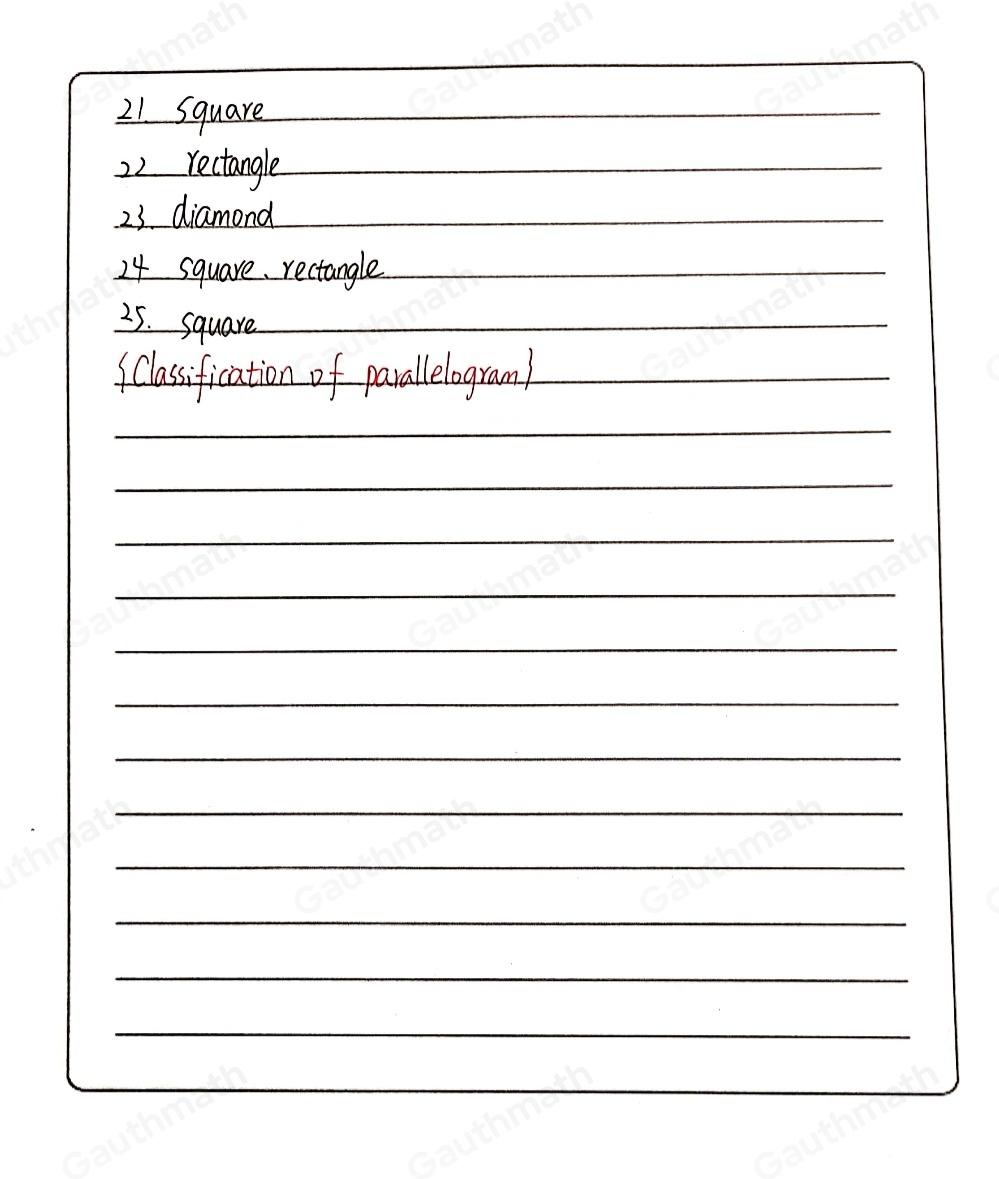 21. square
22 rectangle
23. diamond
24 square、rectangle
25. square
{Classification of parallelogram}
Gauthmath